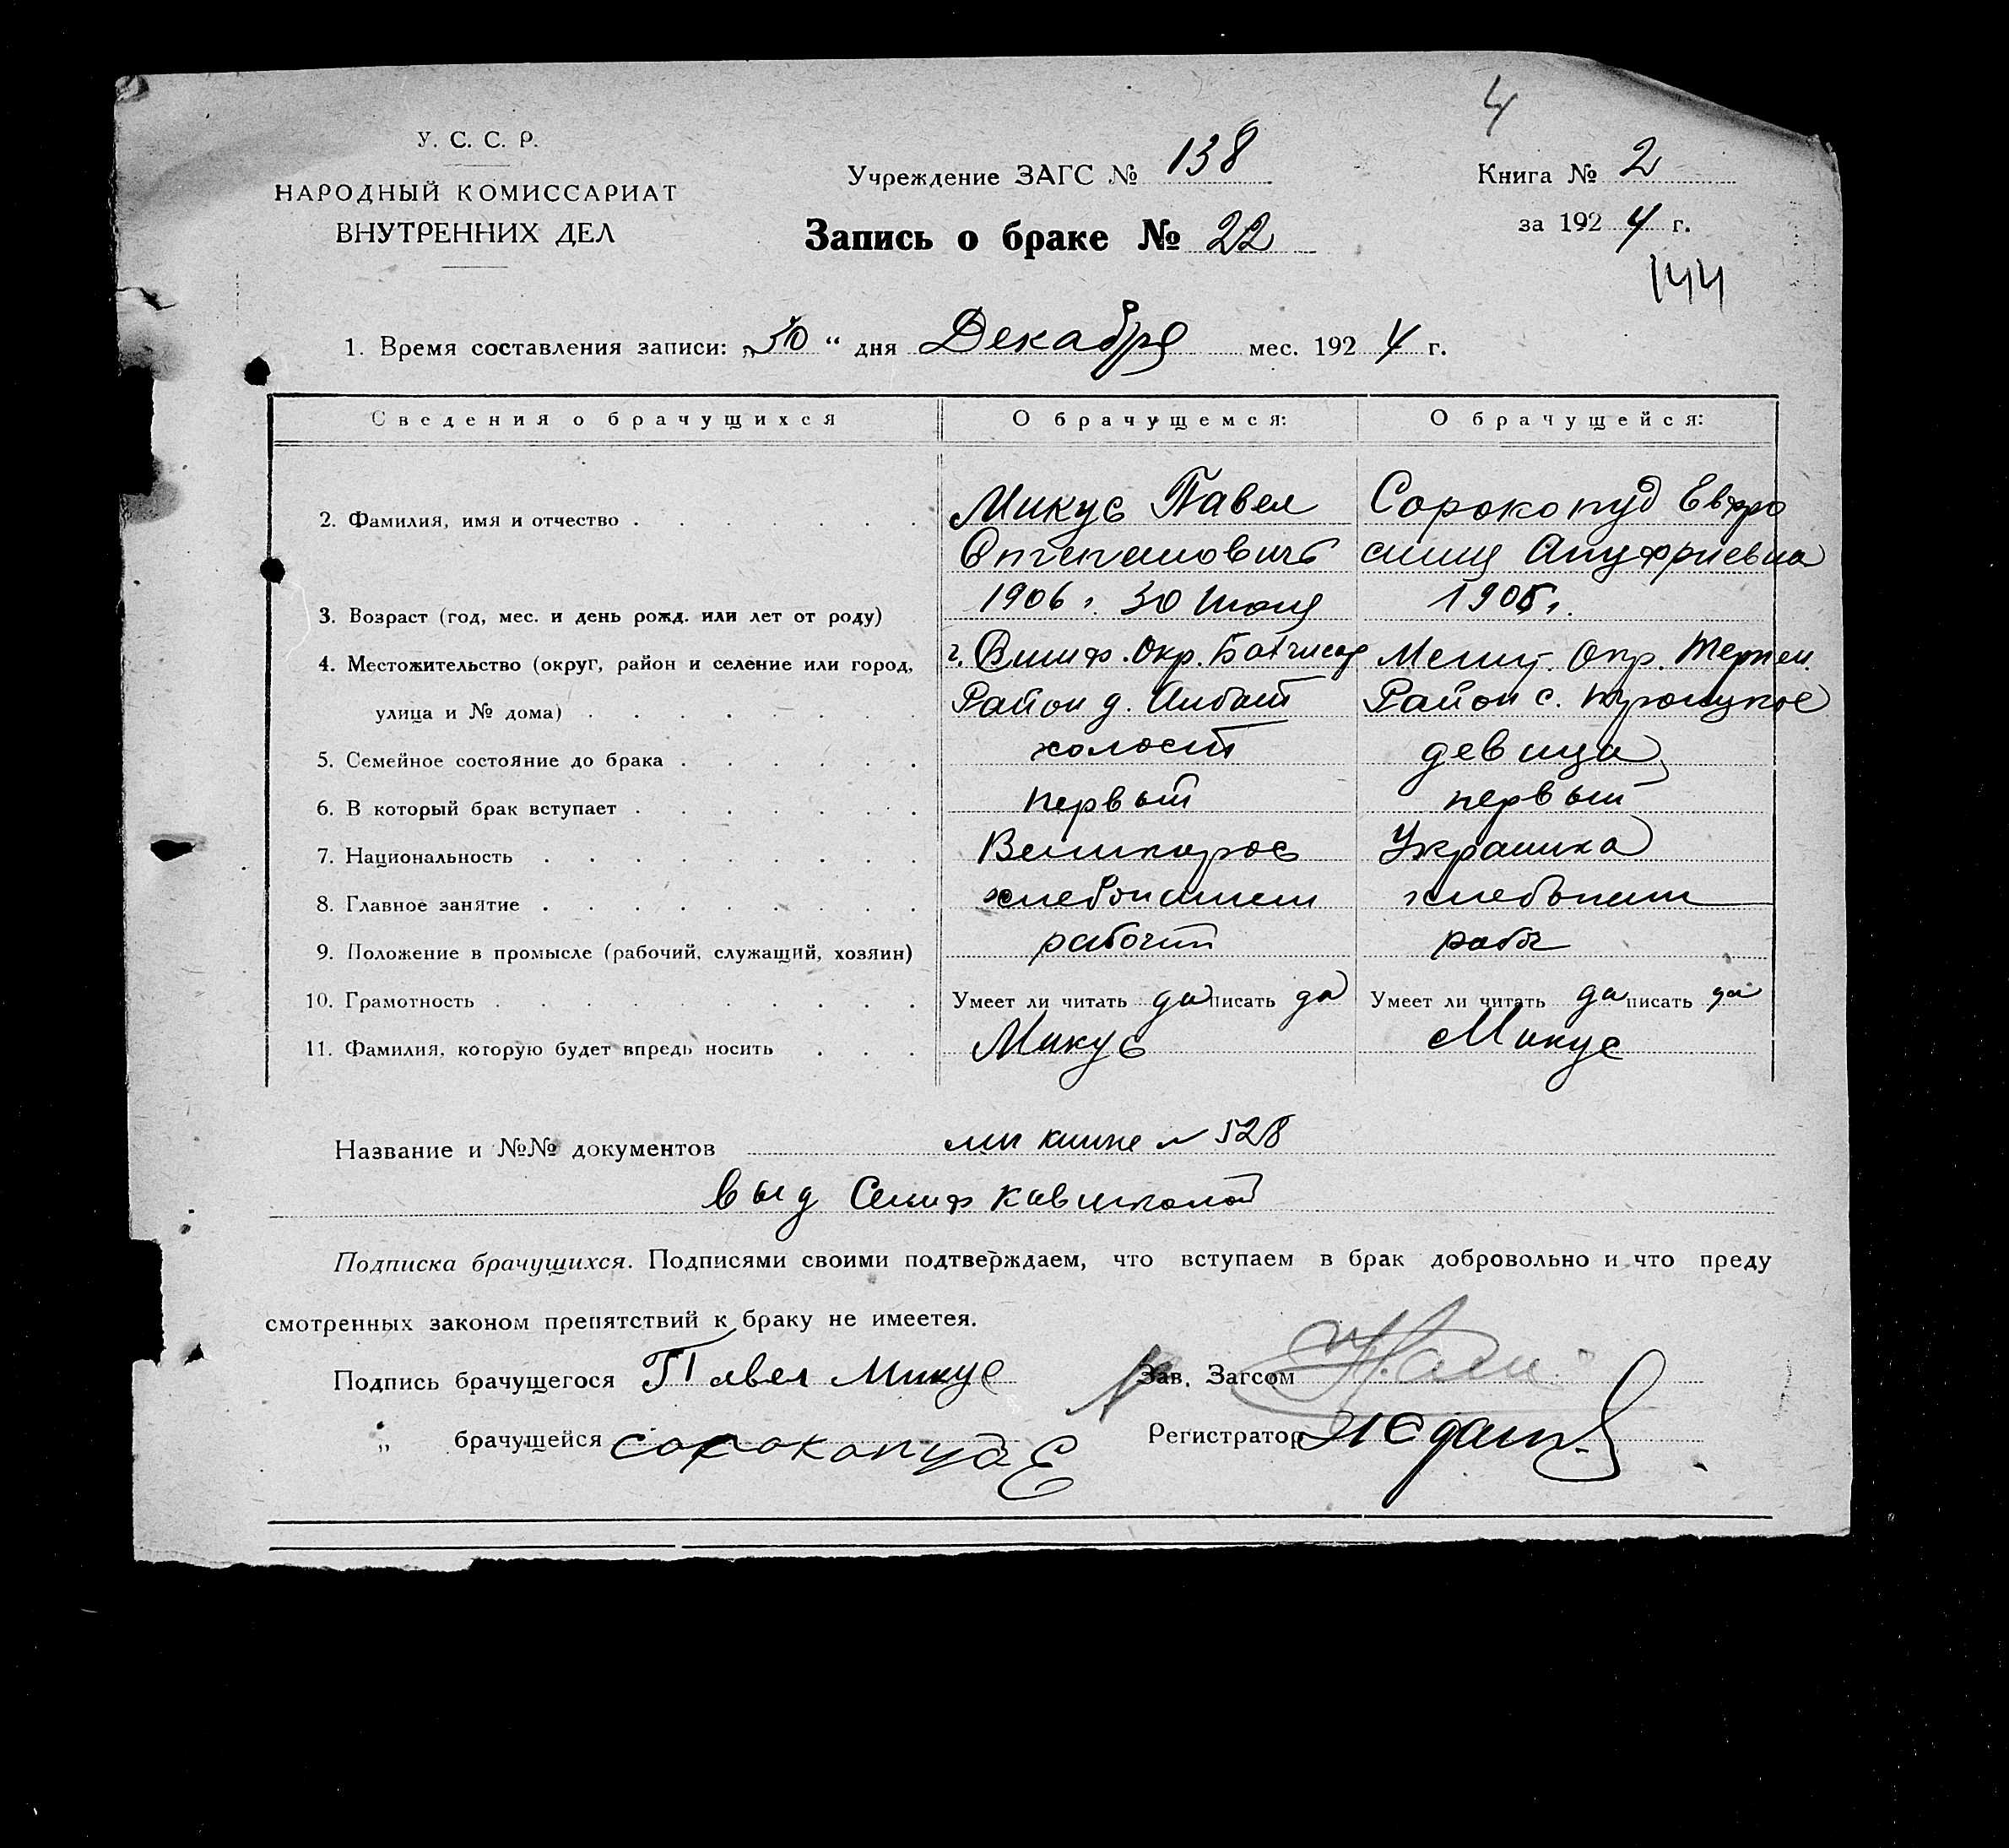 4
У. С. С. Р.
НАРОДНЫЙ КОМИССАРИАТ
ВНУТРЕННИХ ДЕЛ
Учреждение ЗАГС № 138
Запись о браке № 22
Книга № 2
за 1924 г.
144
1. Время составления записи: „30“ дня Декабря мес. 1924 г.
Сведения о брачущихся О брачущемся: О брачущейся:
2. Фамилия, имя и отчество Микус Павел Сорокопуд Евфро
Степановичъ синия Ануфриевна
3. Возраст (год, мес. и день рожд. или лет от роду) 1906 г. 30 Июня 1905 г.
4. Местожительство (округ, район и селение или город, Окр. Окр.
улица и № дома) Район д. Район с. Троицкое
5. Семейное состояние до брака холост девица
6. В который брак вступает первый первый
7. Национальность Великорос Украинка
8. Главное занятие хлебопашец хлебопаш
9. Положение в промысле (рабочий, служащий, хозяин) рабочий рабоч
10. Грамотность Умеет ли читать да писать да Умеет ли читать да писать да
11. Фамилия, которую будет впредь носить Микус Микус
Название и №№ документов книжке № 528
выд Симф кавшколой
Подписка брачущихся. Подписями своими подтверждаем, что вступаем в брак добровольно и что преду
смотренных законом препятствий к браку не имеется.
Подпись брачущегося Павел Микус Зав. Загсом
„ брачущейся Сорокопуд Е Регистратор